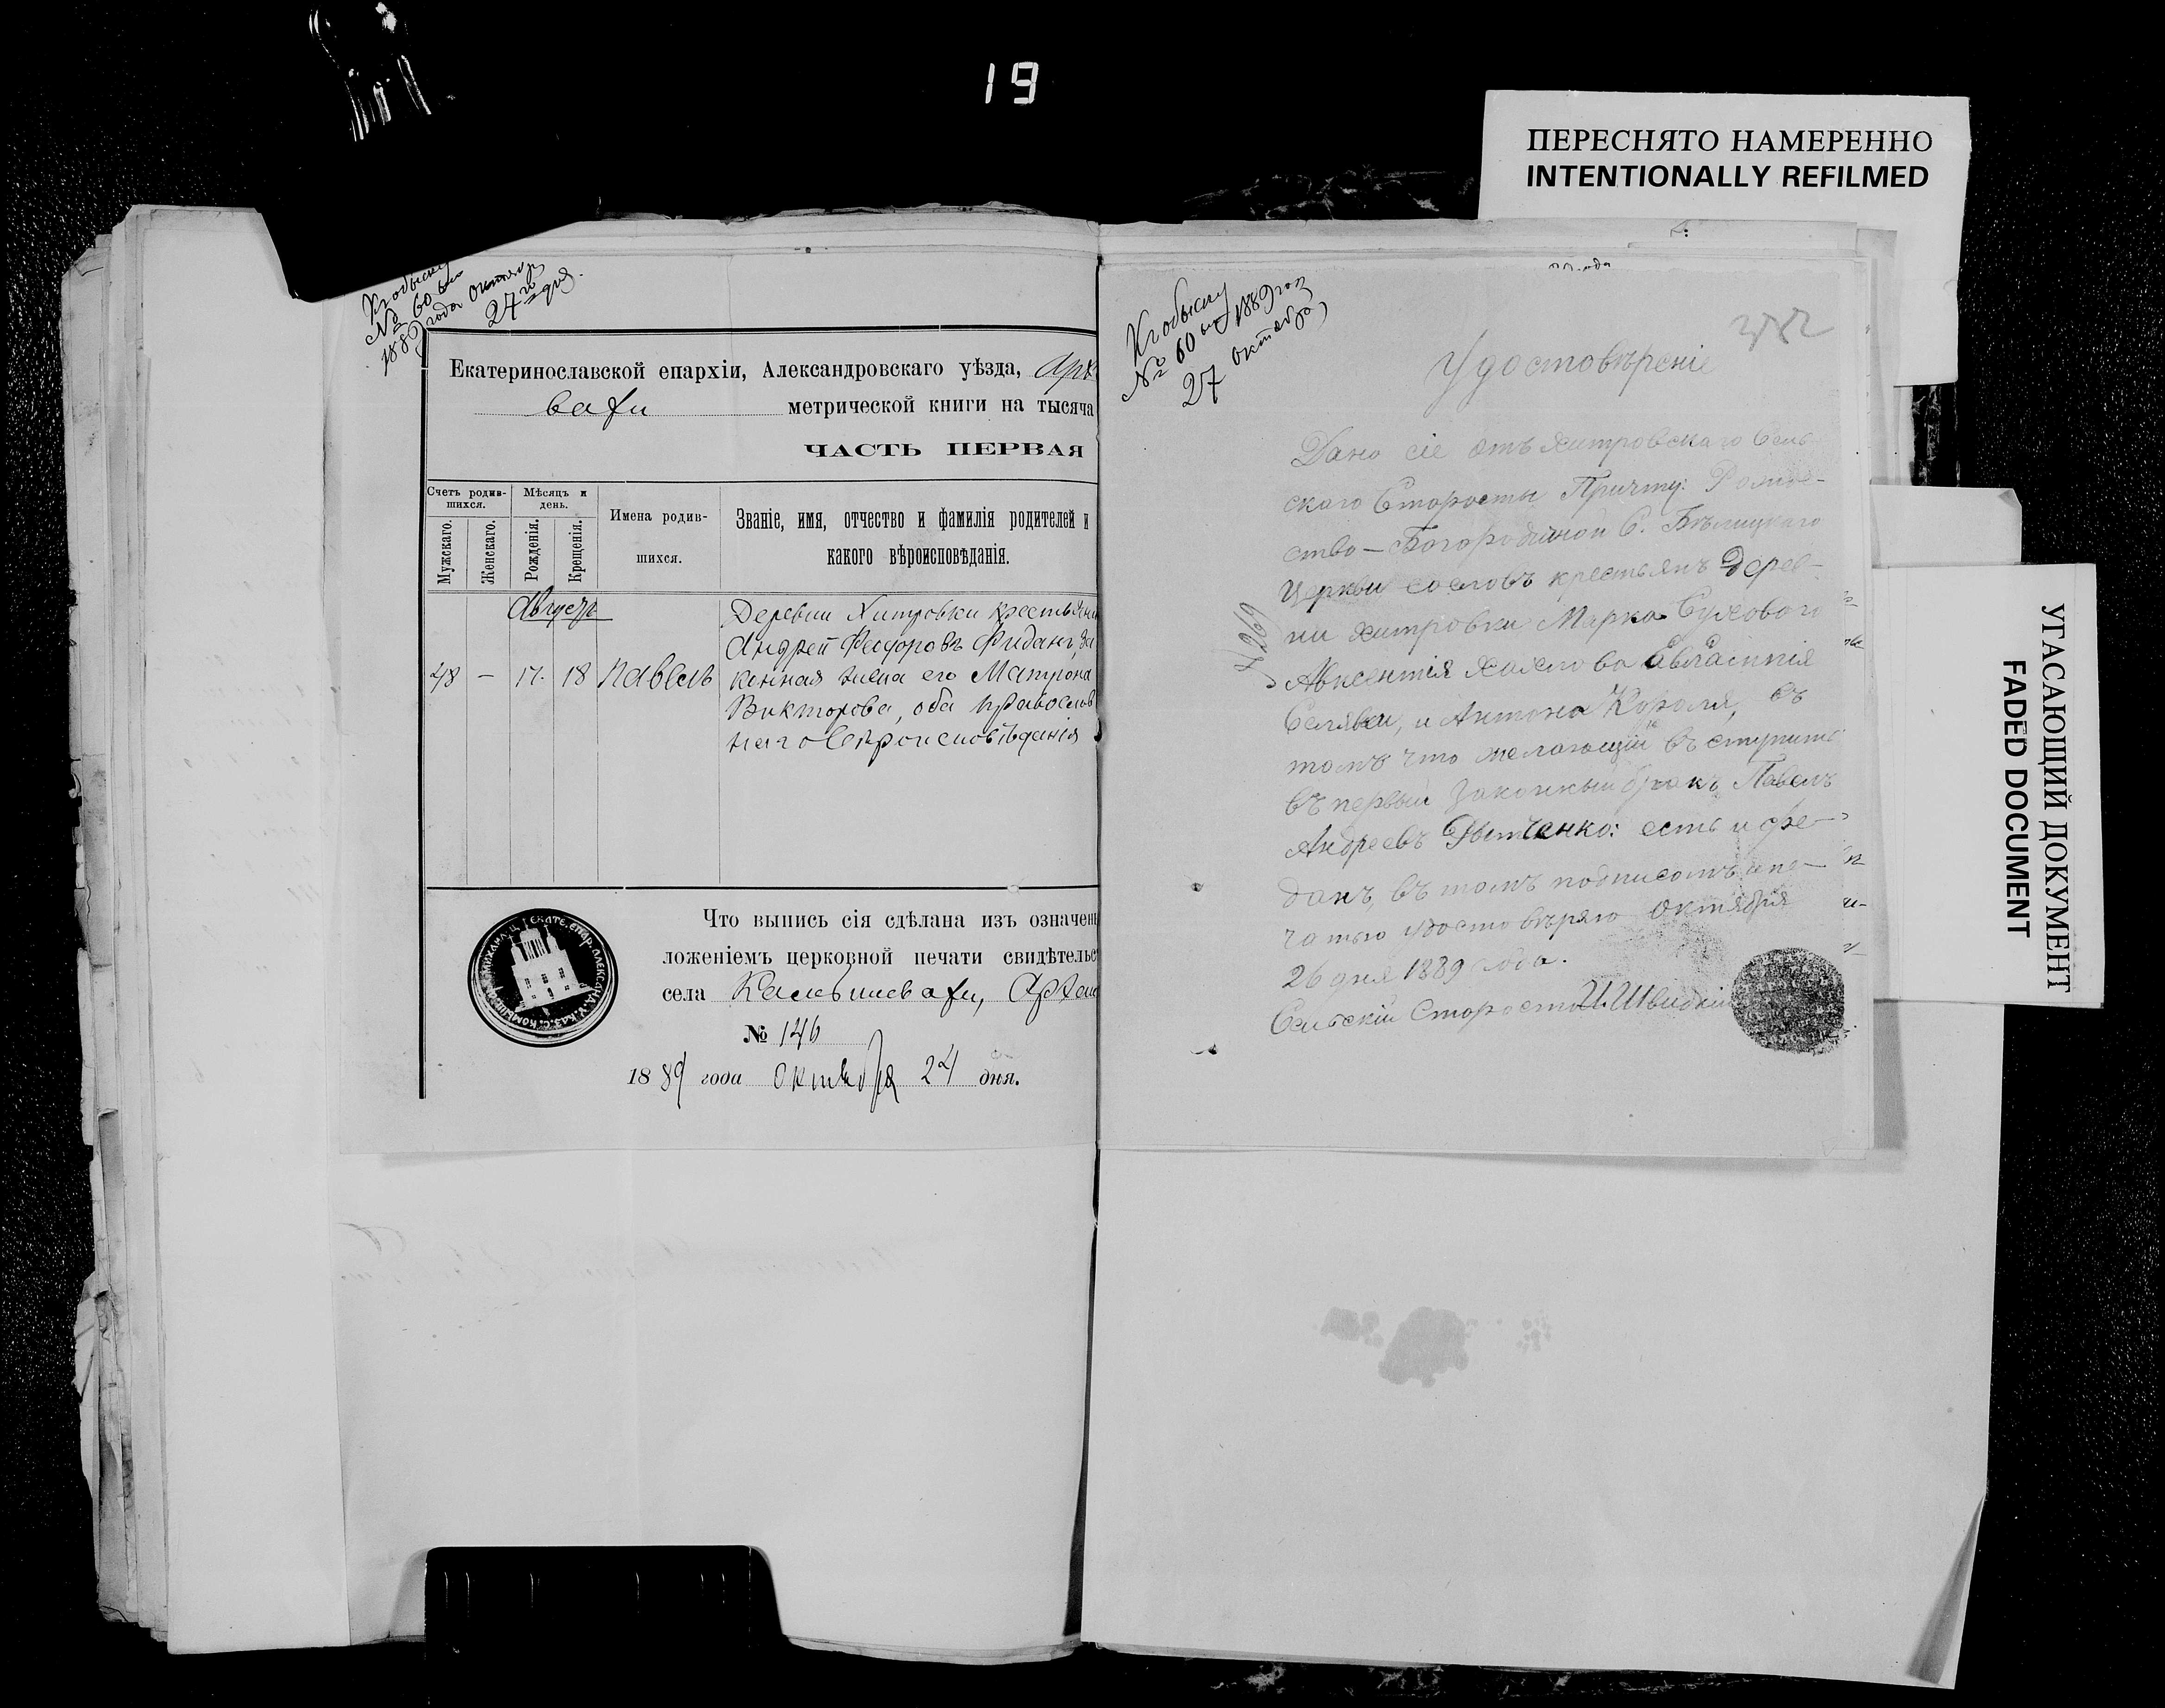 19
ПЕРЕСНЯТО НАМЕРЕННО
INTENTIONALLY REFILMED
УГАСАЮЩИЙ ДОКУМЕНТ
FADED DOCUMENT
К обыску
№ 60 му
1889 года Октября
27 го дня.
Екатеринославской епархіи, Александровскаго уѣзда, Арх
метрической книги на тысяча
ЧАСТЬ ПЕРВАЯ
Счетъ родив-
шихся.
Мѣсяцъ и
день.
Мужскаго.
Женскаго.
Рожденія.
Крещенія.
Имена родив-
шихся.
Званіе, имя, отчество и фамилія родителей и
какого вѣроисповѣданія.
Августъ
48 — 17. 18 Павелъ
Деревни Хитровки крестьянин
Андрей Феодоровъ Фиданъ, за
конная жена его Матрона
Викторова, оба православ
наго вѣроисповѣданія
Что выпись сія сдѣлана изъ означен
ложеніемъ церковной печати свидѣтельс
села Камышевахи, Арханг
№ 146
1889 года октября 24 дня.
К обыску
№ 60 му 1889 год
27 октября
382
Удостовѣреніе
Дано сіе отъ Хитровскаго Сель
скаго Старосты Причту: Рожде-
ство-Богородичной С. Бѣлицкаго
Церкви сословъ крестьянъ Дерев-
ни Хитровки Марка Сухового
Авксентія Хохлова Евлампія
Селявки, и Антона Короля, въ
томъ что желающій въступить
въ первый законный бракъ Павелъ
Андреевъ есть и фе-
данъ, въ томъ подписомъ и пе-
чатью удостовѣряю Октября
26 дня 1889 года.
Сельскій Староста И. Швидкій
№ 269